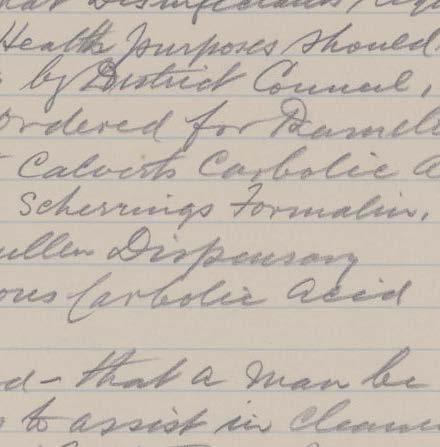 that Disinfectants
Health purposes should
by District Council,
ordered for
Calverts Carbolic
Scherrings Formalin,
ullen Dispensary
ous Carbolic Acid
d - that a man be
to assist in